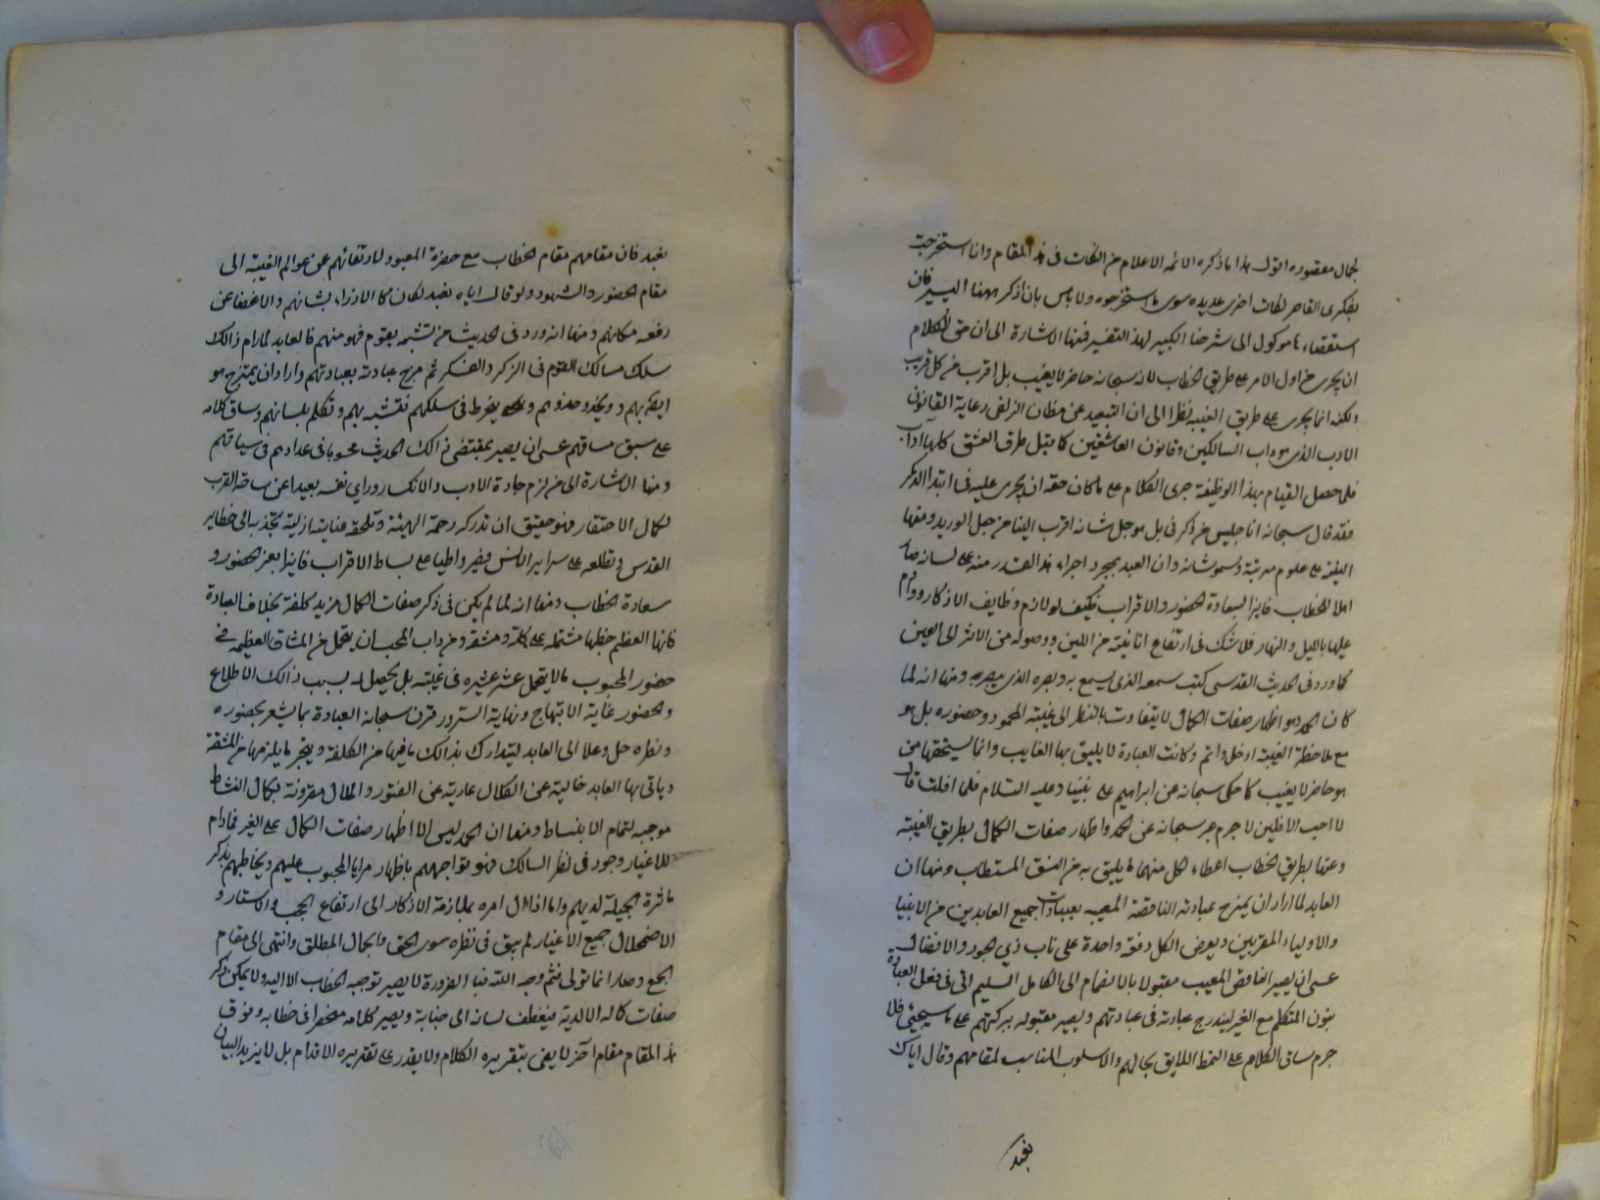 لجمال معقوده اقول هذا ما ذكره الائمه الاعلام من النكات في هذا المقام وانا استخرجت
بفكرى القاصر نكات اخرى عديده سوى ما استخرجوه ولا باس بان اذكر ههنا اليسير فان
استقصاءها موكول الى شرحنا الكبير لهذا التفسير فمنها الاشارة الى ان حق الكلام
ان يجرى من اول الامر على طريق الخطاب لانه سبحانه حاضر لا يغيب بل اقرب من كل قريب
ولكنه انما يجرى على طريق الغيبه نظرا الى ان التبعيد عن مظان الزلفى رعاية القانون
الادب الذى هو داب السالكين وقانون العاشقين كما قيل طرق العشق كلها اداب
فلما حصل القيام بهذا الوظيفة جرى الكلام على ما كان حقه ان يجرى عليه في ابتدا الذكر
فقد قال سبحانه انا جليس من ذكرني بل هو جل شانه اقرب الينا من حبل الوريد ومنها
التنبيه على علو مرتبة وسمو شانه وان العبد بمجرد اجراء هذا القدر منه على لسانه صار
اهلا للخطاب فايزا لسعادة الحضور والاقراب فكيف لو لازم وظايف الاذكار وداوم
عليها بالليل والنهار فلا شك في ارتفاع انانيته من البين ووصوله من الاثر الى العين
كما ورد في الحديث القدسي كنت سمعه الذى يسمع به وبصره الذى يبصر به ومنها انه لما
كان الحمد هو اظهار صفات الكمال لا يتفاوت بالنظر الى غيبته المحمود وحضوره بل هو
مع ملاحظة الغيبته ادخل واتم وكانت العبادة لا يليق بها الغايب وانما يستحقها من
هو حاضر لا يغيب كما حكى سبحانه عن ابراهيم على نبينا وعليه السلام فلما افلت قال
لا احب الافلين لا جرم عبر سبحانه عن الحمد واظهار صفات الكمال بطريق الغيبته
وعنها بطريق الخطاب اعطاء لكل منهما ما يليق به من النسق المستطاب ومنها ان
العابد لما اراد ان يمزج عبادته الناقصة المعيبه بعبادات جميع العابدين من الانبيا
والاولياء المقربين ويعرض الكل دفعة واحدة على باب ذي الجود والافضال
عسى ان يصير الناقص المعيب مقبولا بالانضمام الى الكامل السليم اتى في فعل العبادة
بنون المتكلم مع الغير ليندرج عبادته في عبادتهم ويصير مقبوله ببركتهم على ما سيجئ فلا
جرم ساق الكلام على النمط اللايق بحالهم والاسلوب المناسب لمقامهم وقال اياك
نعبد
نعبد فان مقامهم مقام الخطاب مع حضرة المعبود لارتقائهم عن عوالم الغيبة الى
مقام الحضور والشهود ولو قال اياه نعبد لكان كالازراء بشانهم والاغضا عن
رفعه مكانهم ومنها انه ورد في الحديث من تشبه بقوم فهو منهم فالعابد لما رام ذالك
سلك مسالك القوم في الذكر والفكر ثم مزج عبادته بعبادتهم واراد ان يمتزج هو
ايضا بهم ويحذو حذوهم وينخرط في سلكهم فتشبه بهم وتكلم بلسانهم وساق كلامه
على سبق مساقهم عسى ان يصير بمقتضى ذالك الحديث محسوبا في عدادهم في سياقهم
ومنها الاشارة الى من لزم جادة الادب والانكسار وراي نفسه بعيدا عن ساحة القرب
لكمال الاحتقار فهو حقيق ان تدركه رحمة الهيئة وتلحقه عناية ازلية تجذبه الى خطاير
القدس وتطلعه على سراير الانس فيصير واطيا على بساط الاقراب فايزا بعز الحضور و
سعادة الخطاب ومنها انه لما لم يكن في ذكر صفات الكمال مزيد كلفة بخلاف العبادة
فانها العظم خطبها مشتمله على كلفة ومشقه ومن داب المحب ان يتحمل من المشاق العظيمه في
حضور المحبوب مالا يتحمل عشر عشيره في غيبته بل يحصل له بسبب ذالك الاطلاع
والحضور غاية الابتهاج ونهاية السرور قرن سبحانه العبادة بما يشعر بحضوره
ونظره جل وعلا الى العابد ليتدارك بذالك ما فيها من الكلفة وينجبر ما يلزمها من المشقة
وياتي بها العابد خالية عن الكلال عارية عن الفتور والملال مقرونة بكمال النشاط
موجبه لتمام الانبساط ومنها ان الحمد ليس الا اظهار صفات الكمال على الغير فما دام
للاغيار وجود في نظر السالك فهو تواجههم باظهار مزايا المحبوب عليهم ويخاطبهم بذكر
ماثره الجميلة لديهم واما اذا ال امره بملازمة الاذكار الى ارتفاع الحجب والاستار و
الاضمحلال جميع الاغيار لم يبق في نظره سوى الحق والجمال المطلق وانتهى الى مقام
الجمع وصار اينما تولى فثم وجه الله فبالضرورة لا يصير توجيه الخطاب الا اليه ولا يمكن ذكر
صفات كماله الا لديه فينعطف لسانه الى جنابة ويصير كلامه منحصرا في خطابه وفوق
هذا المقام مقام آخر لا يفى بتقريره الكلام ولا يقدر على تقريره الاقدام بل لا يزيد البيان